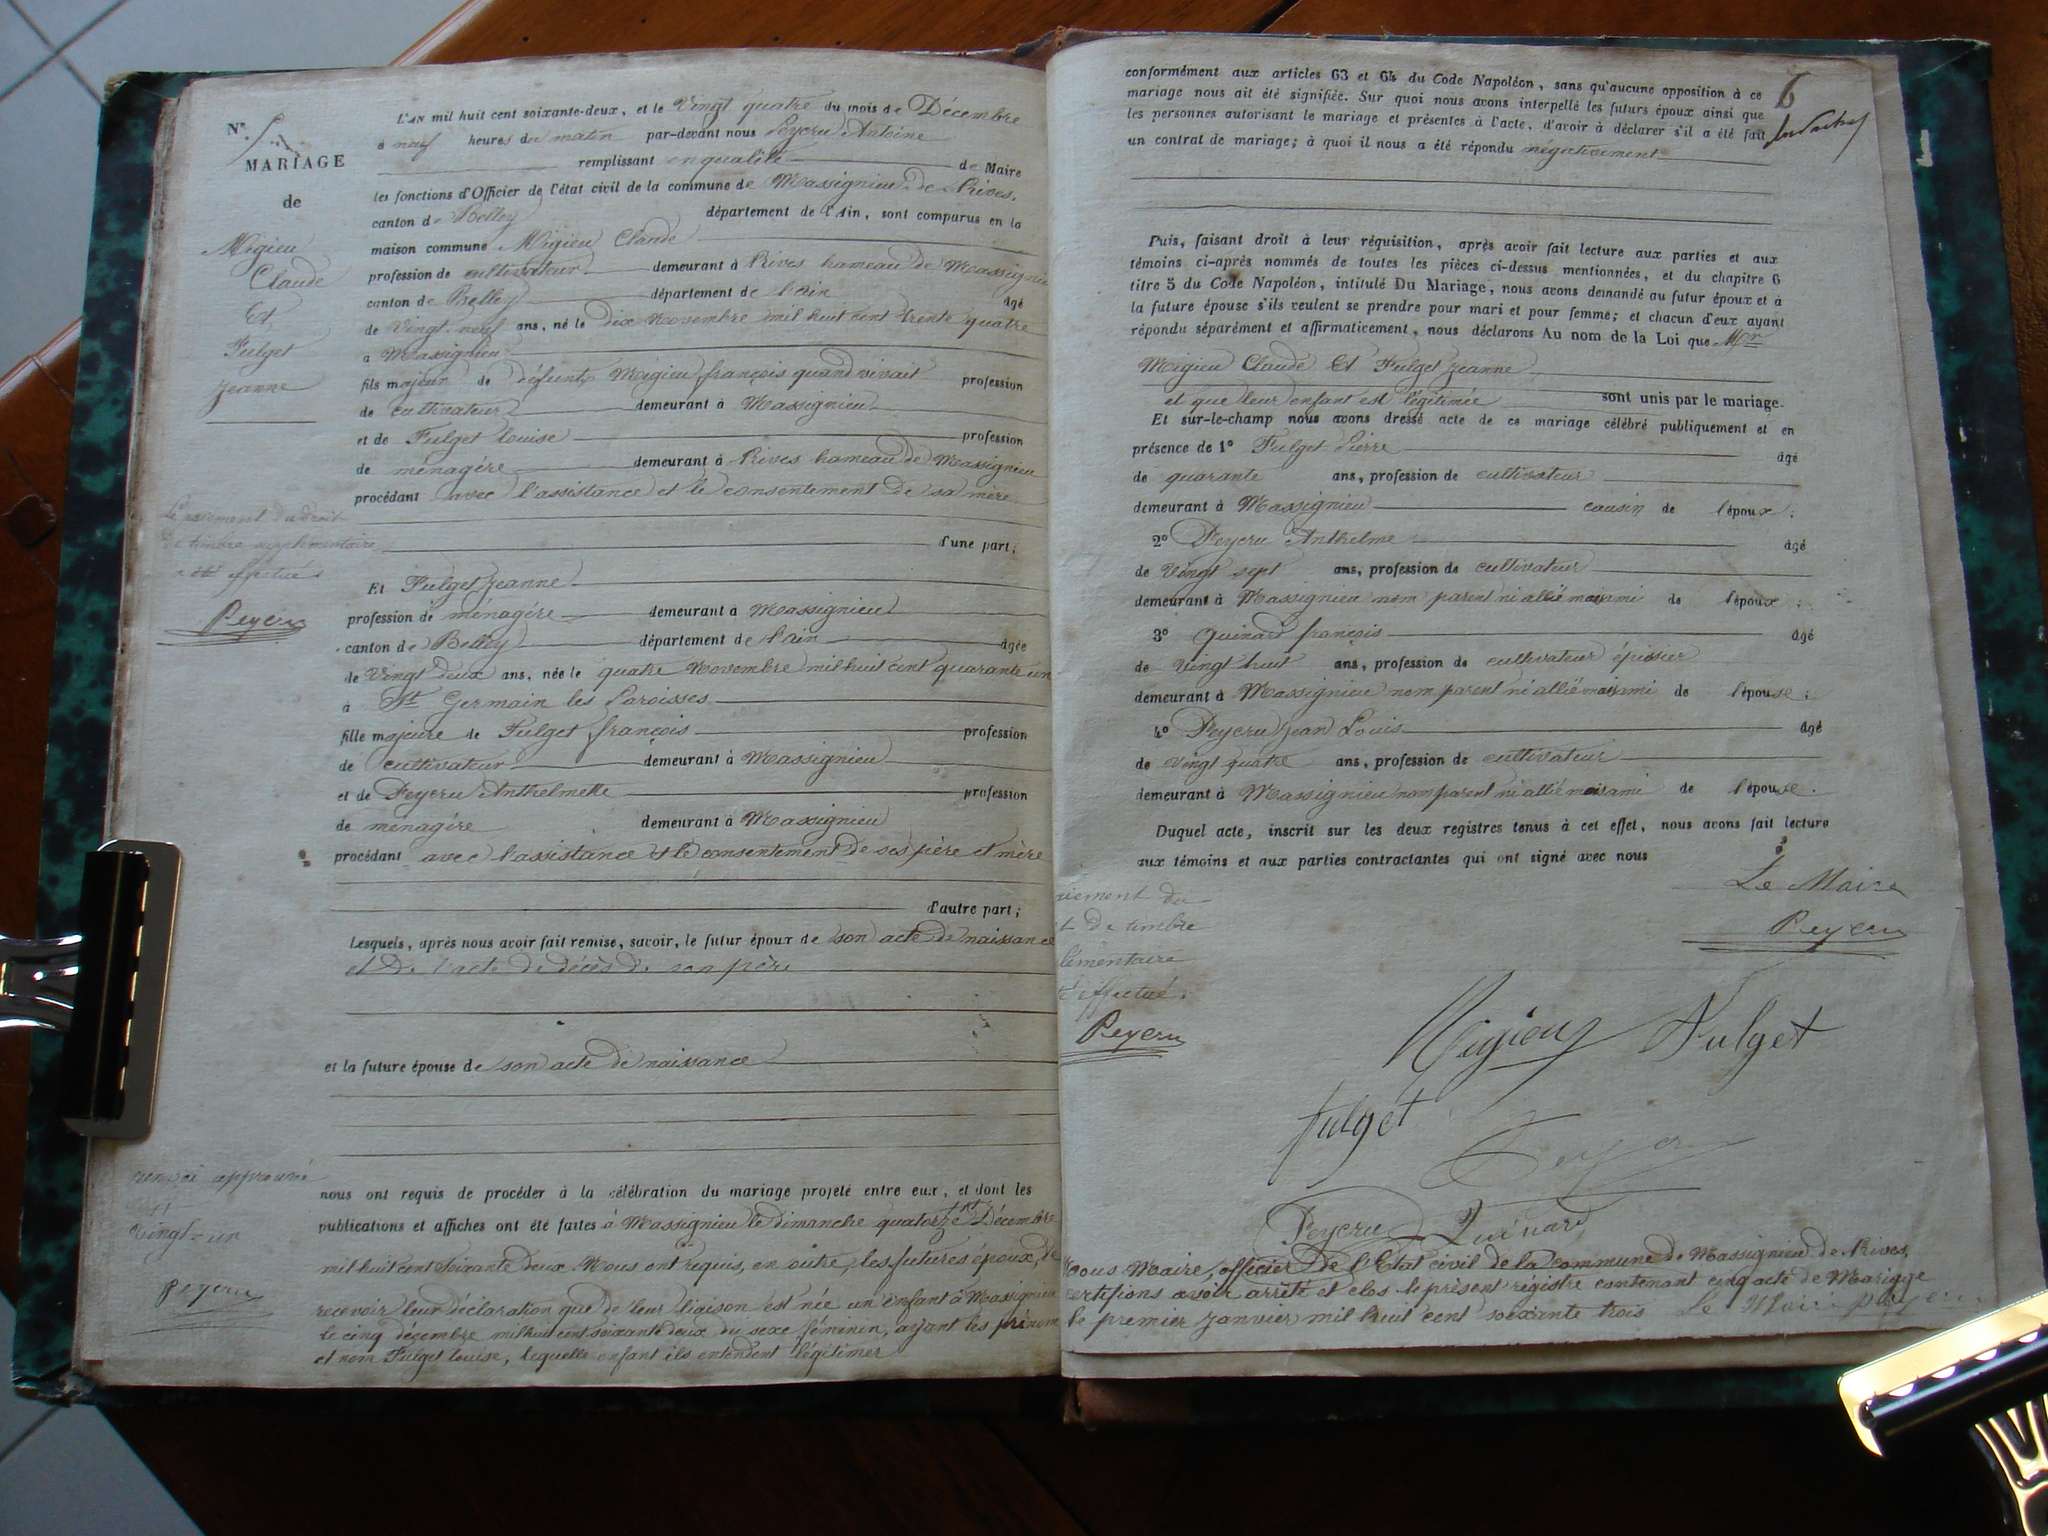 N°.
MARIAGE
de
Migieu
Claude
Et
Fulget
Jeanne
L'AN mil huit cent soixante-deux, et le Vingt quatre du mois de Décembre
à neuf heures du matin par-devant nous Peycru Antoine
remplissant en qualité de Maire
les fonctions d'Officier de l'état civil de la commune de Massignieu de Rives,
canton de Belley département de l'Ain, sont comparus en la
maison commune Migieu Claude
profession de cultivateur demeurant à Rives hameau de Massignieu
canton de Belley département de l'ain âgé
de Vingt neuf ans, né le dix Novembre mil huit cent trente quatre
a Massignieu
fils majeur de défunt Migieu françois quand vivait profession
de cultivateur demeurant à Massignieu
et de Fulget louise profession
de ménagére demeurant à Rives hameau de Massignieu
procédant avec l'assistance et le consentement de sa mère
d'une part;
Le paiement du droit
de timbre supplémentaire
a été effectué
Peycru
Et Fulget Jeanne
profession de ménagére demeurant à Massignieu
canton de Belley département de l'ain âgée
de Vingt deux ans, née le quatre Novembre mil huit cent quarante un
à St Germain les Paroisses
fille majeure de Fulget françois profession
de cultivateur demeurant à Massignieu
et de Peycru Anthelmette profession
de ménagére demeurant à Massignieu
procédant avec l'assistance et le consentement de ses père et mère
d'autre part;
Lesquels, après nous avoir fait remise, savoir, le futur époux de son acte de naissance
et de l'acte de décès de son père
et la future épouse de son acte de naissance
renvoi approuvé
vingt-un
Peycru
nous ont requis de procéder à la célébration du mariage projeté entre eux, et dont les
publications et affiches ont été faites à Massignieu le dimanche quatorze et Décembre
mil huit cent soixante deux Nous ont requis, en outre, les futures époux, de
recevoir leur déclaration que de leur liaison est née un enfant à Massignieu
le cinq décembre mil huit cent soixante deux du sexe féminin, ayant les prénom
et nom Fulget louise, lequelle enfant ils entendent légitimer
6
conformément aux articles 63 et 64 du Code Napoléon, sans qu'aucune opposition à ce
mariage nous ait été signifiée. Sur quoi nous avons interpellé les futurs époux ainsi que
les personnes autorisant le mariage et présentes à l'acte, d'avoir à déclarer s'il a été fait
un contrat de mariage; à quoi il nous a été répondu négativement
Puis, faisant droit à leur réquisition, après avoir fait lecture aux parties et aux
témoins ci-après nommés de toutes les pièces ci-dessus mentionnées, et du chapitre 6
titre 5 du Code Napoléon, intitulé Du Mariage, nous avons demandé au futur époux et à
la future épouse s'ils veulent se prendre pour mari et pour femme; et chacun d'eux ayant
répondu séparément et affirmativement, nous déclarons Au nom de la Loi que Mr
Migieu Claude Et Fulget Jeanne
et que leur enfant est légitimée sont unis par le mariage.
Et sur-le-champ nous avons dressé acte de ce mariage célébré publiquement et en
présence de 1° Fulget Pierre âgé
de quarante ans, profession de cultivateur
demeurant à Massignieu cousin de l'époux;
2° Peycru Anthelme âgé
de Vingt sept ans, profession de cultivateur
demeurant à Massignieu nom parent ni allié mais ami de l'époux;
3° quinard françois âgé
de Vingt huit ans, profession de cultivateur épicier
demeurant à Massignieu nom parent ni allié mais ami de l'épouse;
4° Peycru Jean Louis âgé
de Vingt quatre ans, profession de cultivateur
demeurant à Massignieu nom parent ni allié mais ami de l'épouse.
Duquel acte, inscrit sur les deux registres tenus à cet effet, nous avons fait lecture
aux témoins et aux parties contractantes qui ont signé avec nous
Le Maire
Peycru
iement du
t de timbre
lémentaire
é effectué.
Peycru
Migieu Fulget
fulget
Peycru
Peycru Quinard
Nous Maire, officier de l'Etat civil de la commune de Massignieu de Rives,
certifions avoir arrêté et clos le présent régistre contenant cinq acte de Mariage
le premier Janvier mil huit cent soixante trois Le Maire Peycru